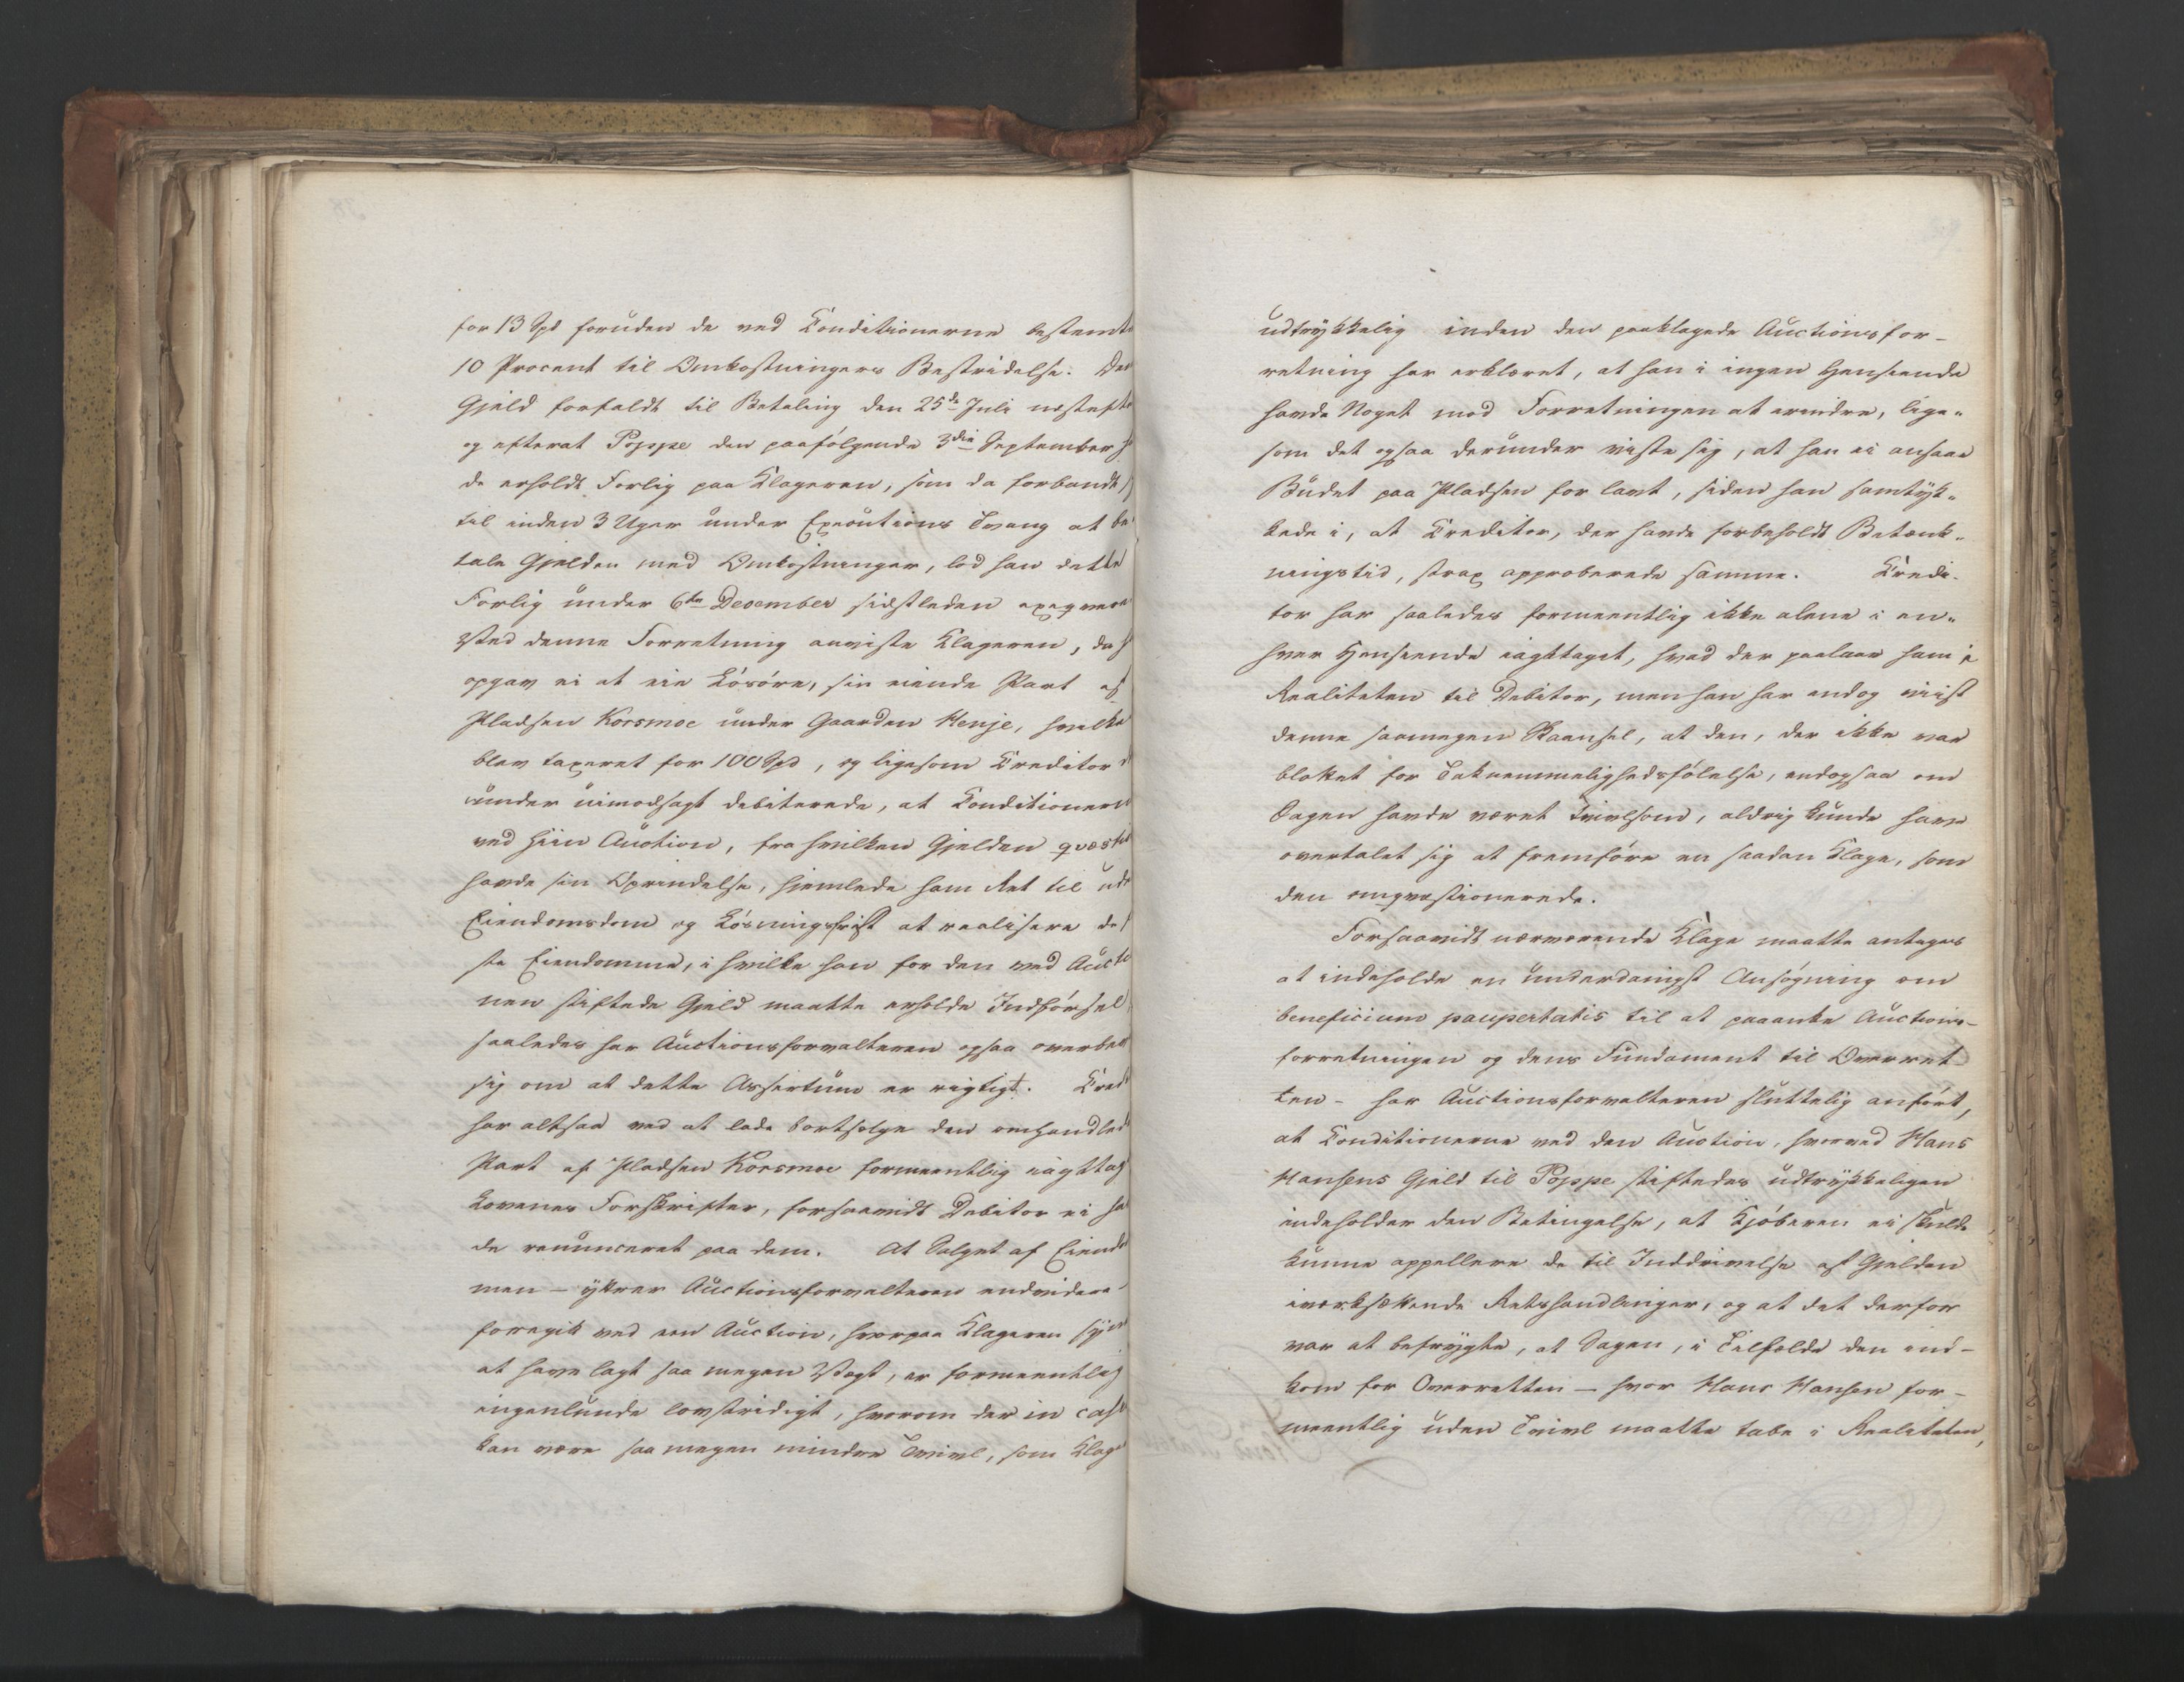 for 13 Spd foruden de ved Conditionerne bestemte
10 Procent til Omkostningers Bestridelse. Den
Gjeld forfaldt til Betaling den 25de Juli næstefte
og efterat Poppe den paafølgende 3die September h
de erholdt Forlig paa Klageren, som da forbandt s
til inden 3 Uger under Executions Tvang at be
tale Gjelden med Omkostninger, lod han dette
Forlig under 6te December sidstleden exeqvere
Ved denne Forretning anviste Klageren, da h
opgav ei at eie Løsøre, sin eiende Part af
Pladsen Korsmoe under Gaarden Henje, hvilke
blev taxeret for 100 Spd, og ligesom Creditor d
under uimodsagt debiterede, at Conditionern
ved hiin Auction, fra hvilken Gjelden qvæst
havde sin Oprindelse, hjemlede ham Ret til ude
Eiendomsdom og Løsningsfrist at realisere de f
ste Eiendomme, i hvilke han for den ved Auctio
nen stiftede Gjeld maatte erholde Indførsel,
saaledes har Auctionsforvalteren ogsaa overbe
sig om at dette Assertum er rigtigt. Credi
har altsaa ved at lade bortsælge den omhandlede
Part af Pladsen Korsmoe formeentlig iagttag
Lovenes Forskrifter, forsaavidt Debitor ei ha
de renunceret paa dem. At Salget af Eiendo
men – ytrer Auctionsforvalteren endvidere –
foregik ved een Auction, hvorpaa Klageren syn
at have lagt saa megen Vægt, er formeentlig
ingenlunde lovstridigt, hvorom der in casu
kan være saa megen mindre Tvivl, som Klag
udtrykkelig inden den paaklagede Auctionsfor-
retning har erklæret, at han i ingen Henseende
havde Noget mod Forretningen at erindre, lige-
som det ogsaa derunder viste sig, at han ei ansaae
Budet paa Pladsen for lavt, siden han samtyk-
kede i, at Creditor, der havde forbeholdt Betænk-
ningstid, strax approberede samme. Credi-
tor har saaledes formeentlig ikke alene i en-
hver Henseende iagttaget, hvad der paalaae ham i
Realiteten til Debitor, men han har endog viist
denne saamegen Skaansel, at den, der ikke var
blottet for Taknemmelighedsfølelse, endogsaa om
Sagen havde været tvivlsom, aldrig kunde have
overtalet sig at fremføre en saadan Klage, som
den omqvæstionerede.
Forsaavidt nærværende Klage maatte antages
at indeholde en underdanigst Ansøgning om
beneficium paupertatis til at paaanke Auctions-
forretningen og dens Fundament til Overret-
ten – har Auctionsforvalteren sluttelig anført,
at Conditionerne ved den Auction, hvorved Hans
Hansens Gjeld til Poppe stiftedes udtrykkeligen
indeholder den Betingelse, at Kjøberen ei skulde
kunne appellere de til Inddrivelse af Gjelden
iværksættende Retshandlinger, og at det derfor
var at befrygte, at Sagen, i Tilfælde den ind-
kom for Overretten – hvor Hans Hansen for-
meentlig uden Tvivl maatte tabe i Realiteten,